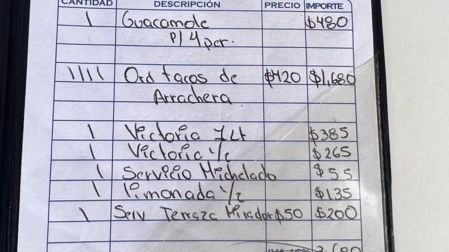 CANTIDAD DESCRIPCIÓN PRECIO IMPORTE
1 Guacamole $480
P/ 4 per.
1111 Ord tacos de $420 $1,680
Arrachera
1 Victoria 1Lt $385
1 Victoria 1/2 $265
1 Servicio Michelado $55
1 Limonada 1/2 $135
1 Serv Terraza Mirador $50 $200